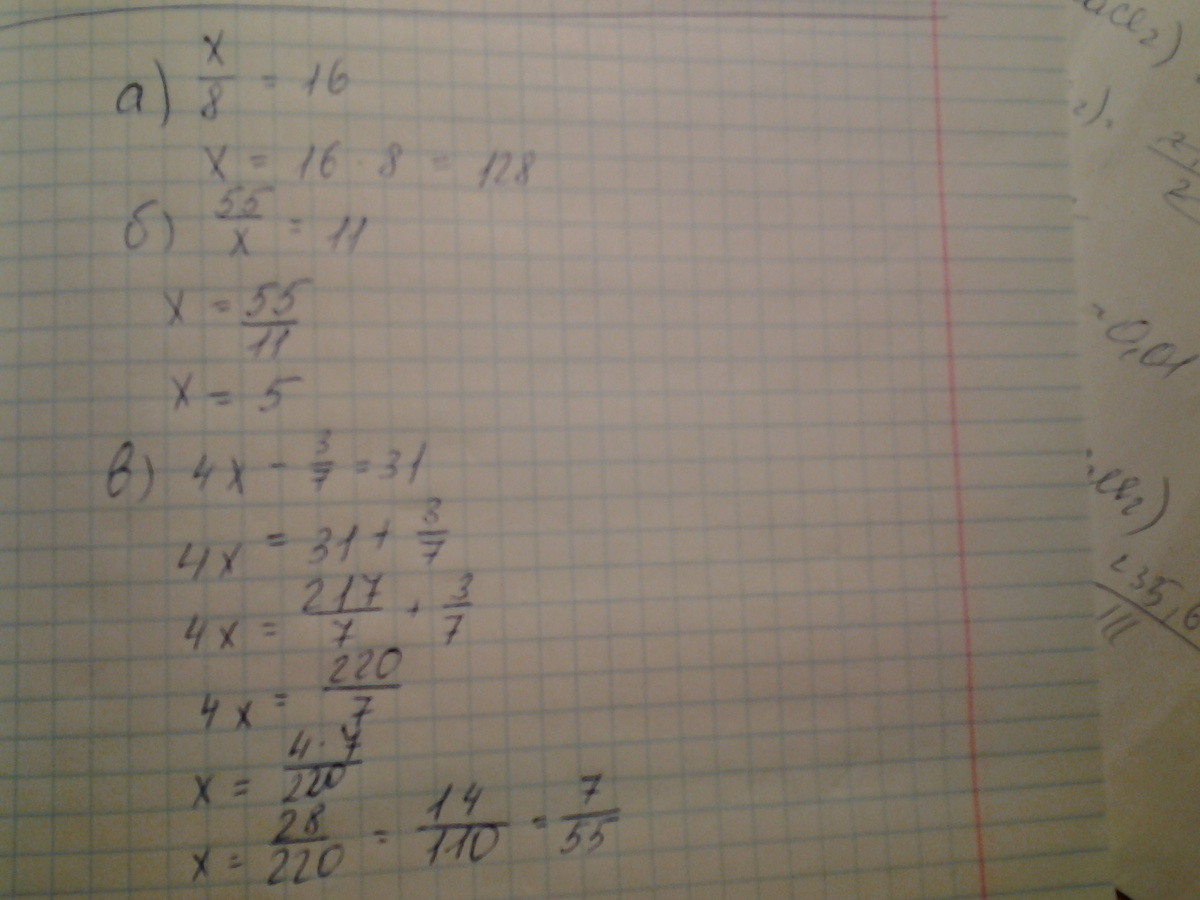 а) x/8 = 16
x = 16 · 8 = 128
б) 55/x = 11
x = 55/11
x = 5
в) 4x - 3/7 = 31
4x = 31 + 3/7
4x = 217/7 + 3/7
4x = 220/7
x = 4·7/220
x = 28/220 = 14/110 = 7/55
0,01